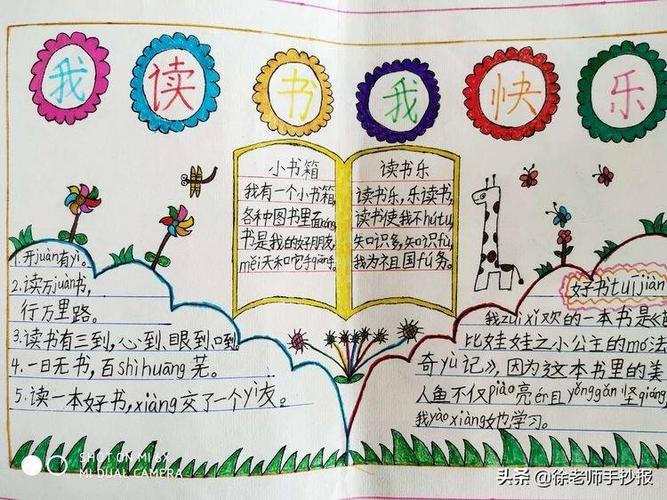 我读书我快乐
小书箱
我有一个小书箱,
各种图书里面
书是我的好朋友,
měi天和它手qiān手。
读书乐
读书乐,乐读书,
读书使我不hútu,
知识多,知识fù,
我为祖国fú务。
1.开juàn有yì。
2.读万juàn书,
行万里路。
3.读书有三到,心到、眼到、口到。
4.一日无书,百shìhuāng芜。
5.读一本好书,xiàng交了一个yì友。
好书tuījiàn
我zuìxǐ欢的一本书是《
比娃娃之小公主的mó法
奇yù记》,因为这本书里的美
人鱼不仅piào亮ér且yǒnggǎn坚qiáng
我yào xiàng她也学习。
SHOT ON MI 6X
MI DUAL CAMERA
头条@徐老师手抄报